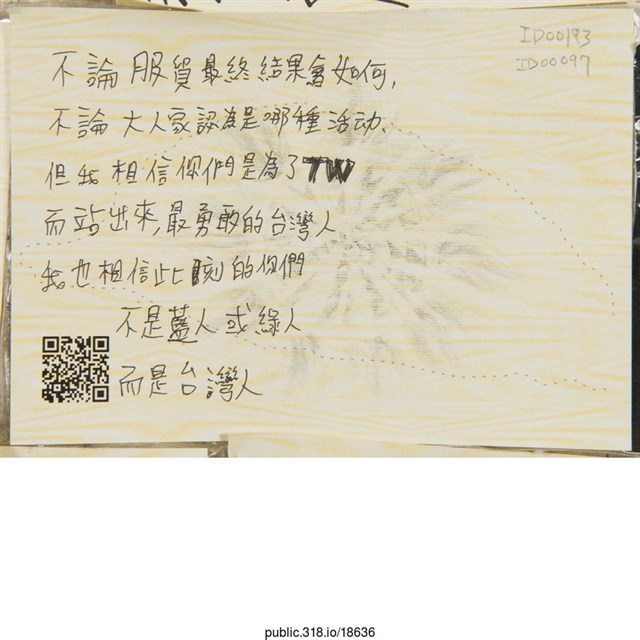 ID00193
ID00097
不論 服貿最終結果會如何,
不論 大人家認為是哪種活动、
但我 相信你們是為了TW
而站出來,最勇敢的台灣人
我也相信此刻的你們
不是藍人或綠人
而是台灣人
public.318.io/18636